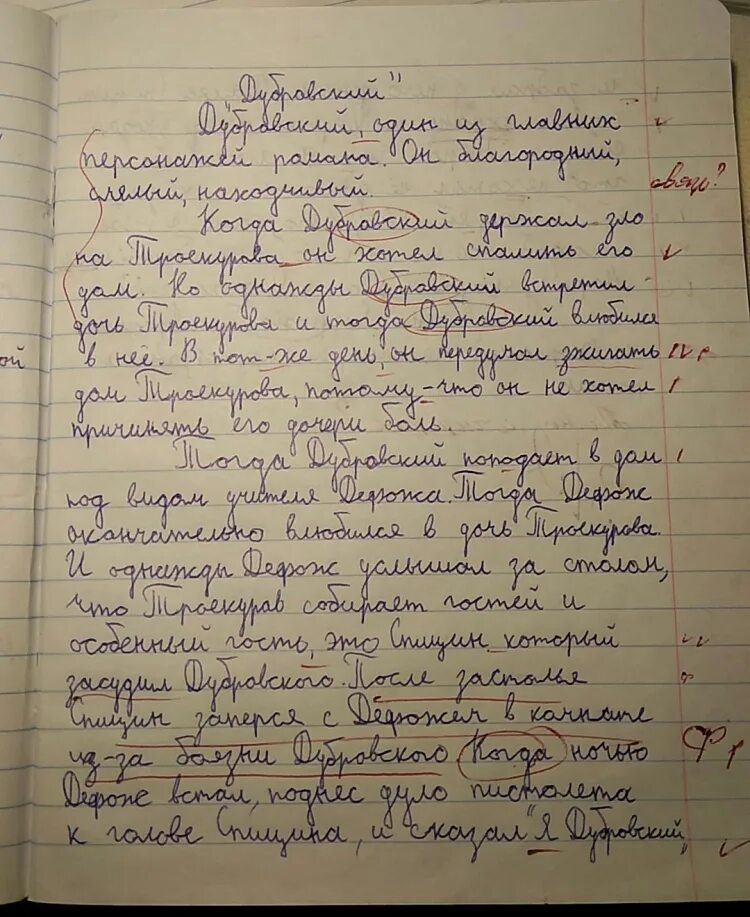 "Дубровский"
Дубровский, один из главных
персонажей романа. Он благородний,
смелый, находчивый.
связь?
Когда Дубровский держал зло
на Троекурова он хотел спалить его
дом. Но однажды Дубравский встретил
дочь Троекурова и тогда Дубровский влюбился
в неё. В тот-же день, он передумал зжигать
дом Троекурова, потому-что он не хотел
причинять его дочери боль.
Тогда Дубровский поподает в дом
под видам учителя Дефожа. Тогда Дефож
окончательно влюбился в дочь Троекурова.
И однажды Дефож услышал за столом,
что Троекурав собирает гостей и
особенный гость, это Спицин который
засудил Дубровского. После застолья
Спицин заперся с Дефожем в комнате
из-за боязни Дубровского Когда ночью
Ф
Дефож встал, поднес дуло пистолета
к голове Спицина, и сказал "Я Дубровский"
ой